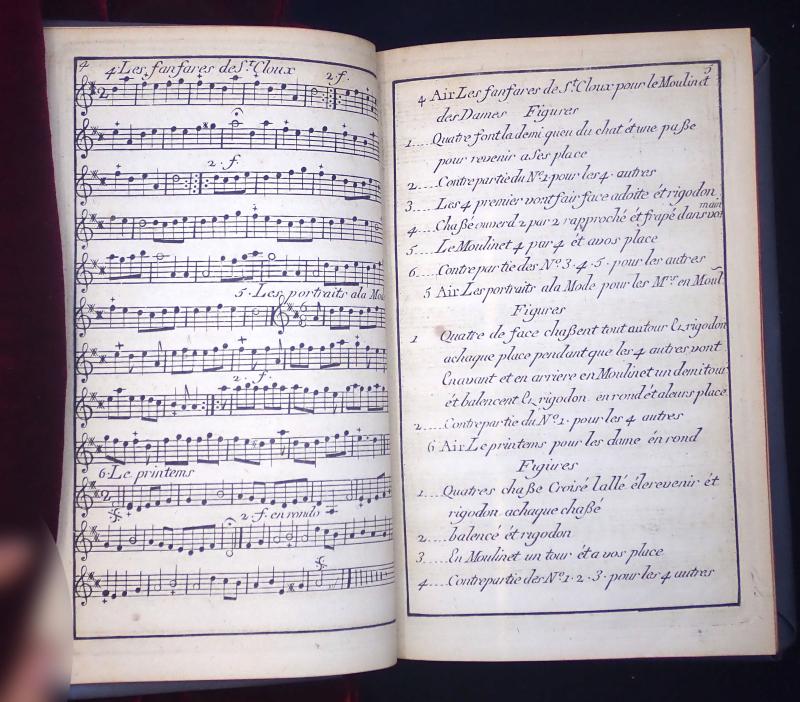 4
4 Les fanfares de S.t Cloux
2 f.
2. f.
5. Les portraits ala Mo
2. f.
6. Le printems
2. f. en rondo
5
4 Air Les fanfares de S.t Cloux pour le Moulinet
des Dames Figures
1.... Quatre font la demi queu du chat ét une paße
pour revenir a ses place
2.... Contrepartie du N.o 1. pour les 4. autres
3.... Les 4 premier vont fair face adoite ét rigodon
4.... Chaßé ouverd 2 par 2 rapproché et frapé dans vos main
5.... Le Moulinet 4 par 4 ét avos place
6.... Contrepartie des N.o 3. 4. 5. pour les autres
5 Air Les portraits ala Mode pour les M.rs en Moul
Figures
1 Quatre de face chaßent tout autour Et rigodon
achaque place pendant que les 4 autres vont
Enavant et en arriere en Moulinet un demi tour
ét balencent Et rigodon en rond ét aleurs place
2.... Contrepartie du N.o 1. pour les 4 autres
6 Air Le printems pour les dame én rond
Figures
1.... Quatres chaße Croisé l'allé éle revenir ét
rigodon achaque chaßé
2.... balencé ét rigodon
3.... En Moulinet un tour ét a vos place
4.... Contrepartie des N.o 1. 2. 3. pour les 4 autres